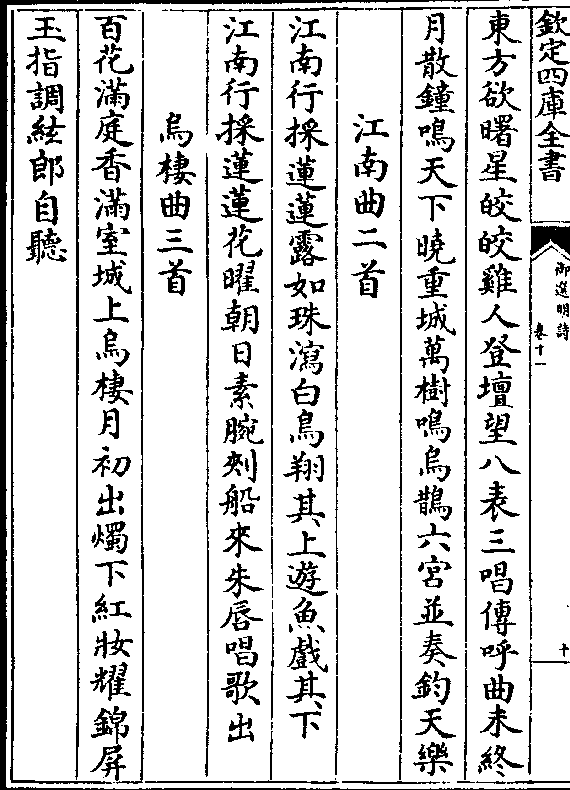 欽定四庫全書
御選明詩
卷十一
十
東方欲曙星皎皎雞人登壇望八表三唱傳呼曲未終
月散鐘鳴天下曉重城萬樹鳴烏鵲六宮並奏鈞天樂
江南曲二首
江南行採蓮蓮露如珠瀉白鳥翔其上遊魚戲其下
江南行採蓮蓮花曜朝日素腕剡船來朱唇唱歌出
烏棲曲三首
百花滿庭香滿室城上烏棲月初出燭下紅妝耀錦屏
玉指調絃郎自聽